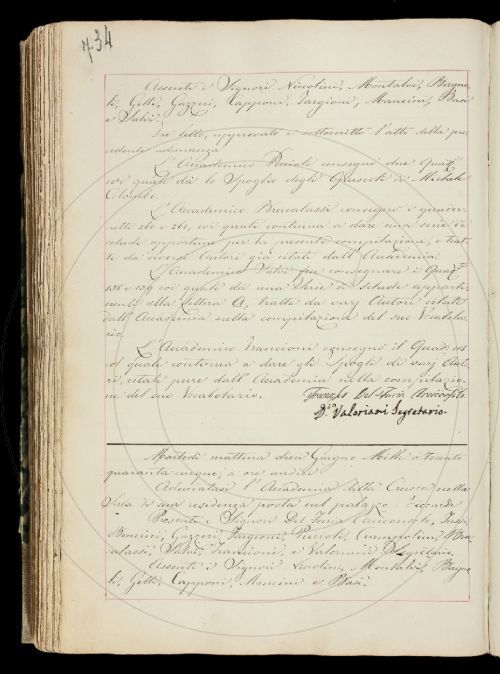 734
Assenti i Signori Niccolini, Montalvi, Bagno-
li, Gelli, Gazzeri, Capponi, Targioni, Mancini, Basi
e Salvi.
Fu letto, approvato e sottoscritto l'atto della pre
cedente adunanza
L'Accademico consegnò due Quad.ni
coi quali dà lo Spoglio degli Opuscoli di
L'Accademico Brucalassi consegnò i quader-
netti e 260, coi quali continua a dare una serie di
schede opportune per la presente compilazione, e trat
te da diversi Autori già citati dall'Accademia
L'Accademico Salvi fece consegnare i Quad.ni
138 e 139 coi quali dà una Serie di Schede apparte-
nenti alla lettera A, tratte da varj Autori citati
dall'Accademia nella compilazione del suo Vocabola-
rio
L'Accademico Francioni consegnò il Quad.
col quale continua a dare gli Spogli di varj Auto
ri, citati pure dall'Accademia nella compilazio-
ne del suo Vocabolario.
Francesco Del Furia Arciconsolo
D.co Valeriani Segretario.
Martedì mattina dieci Giugno Mille ottocento
quaranta cinque, a ore undici
Adunatasi l'Accademia della Crusca nella
Sala di sua residenza posta nel palazzo Riccardi
Presenti i Signori Del Furia Arciconsolo,
Bencini, Gazzeri, Targioni, Ciampolini, Bru
calassi, Salvi, Francioni, e Valeriani Segretario,
Assenti i Signori Niccolini, Montalvi, Bagno
li, Gelli, Capponi, Mancini e Basi.